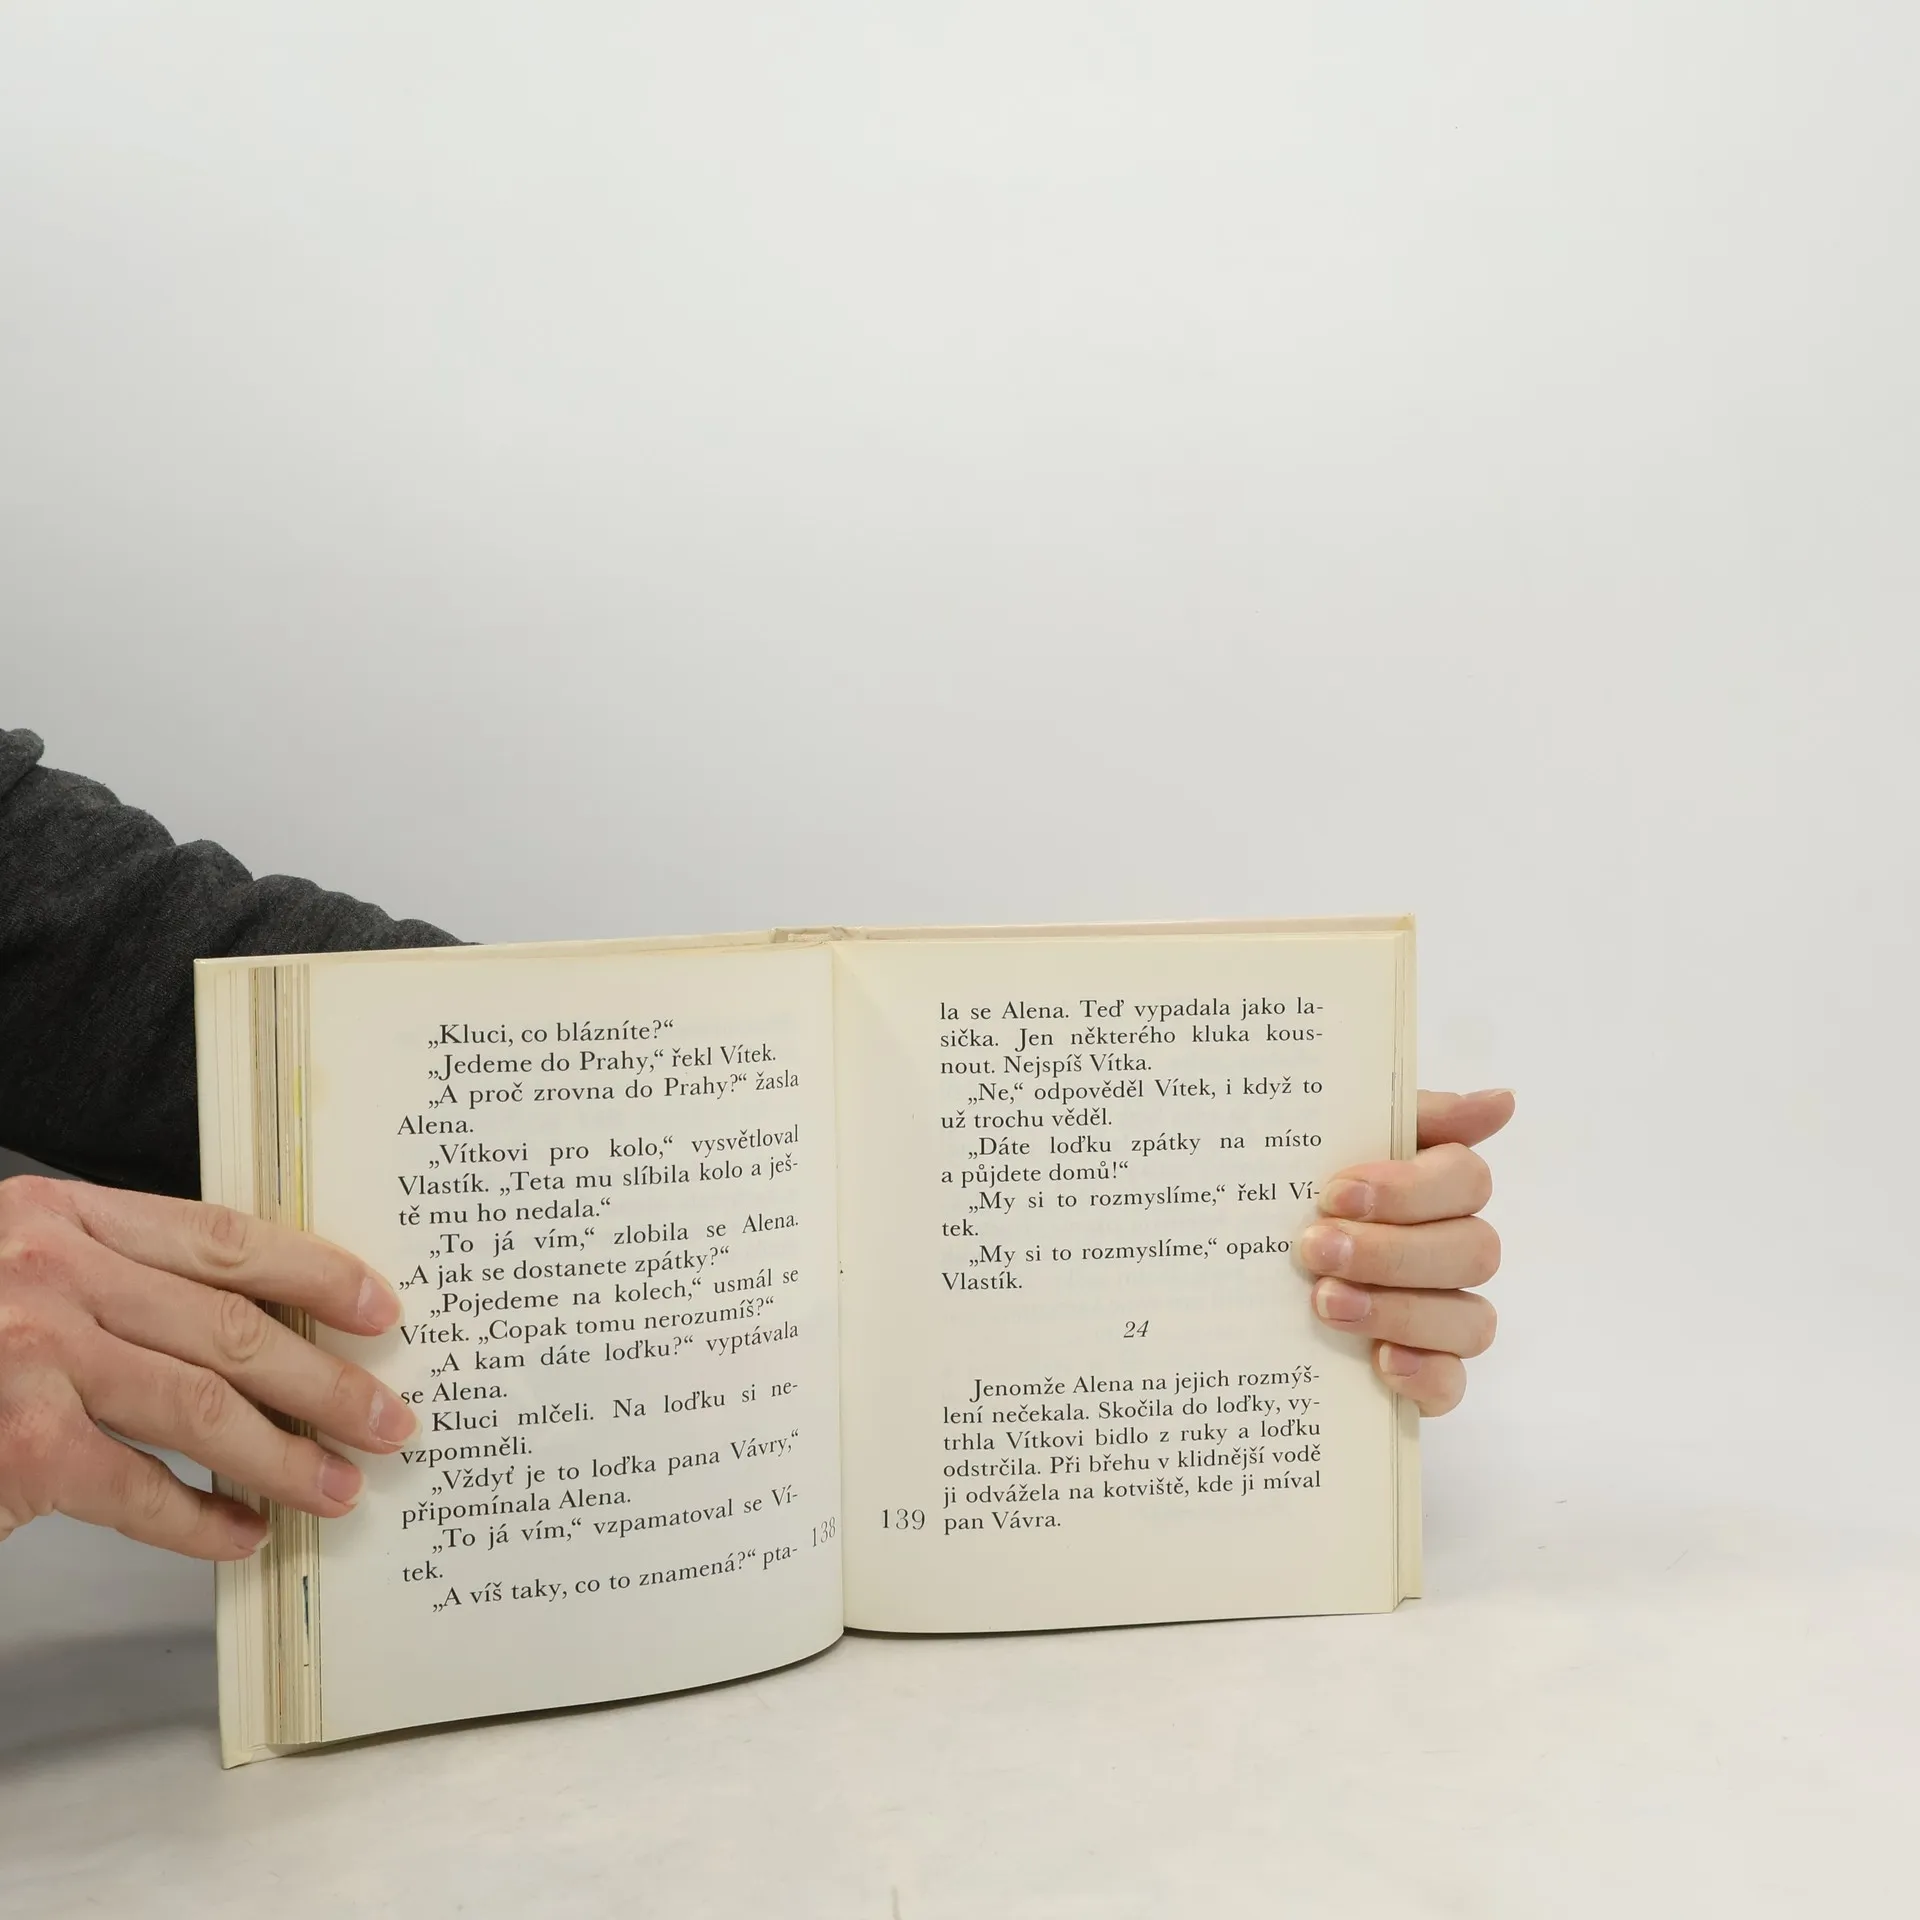 „Kluci, co blázníte?“
„Jedeme do Prahy,“ řekl Vítek.
„A proč zrovna do Prahy?“ žasla
Alena.
„Vítkovi pro kolo,“ vysvětloval
Vlastík. „Teta mu slíbila kolo a ješ-
tě mu ho nedala.“
„To já vím,“ zlobila se Alena.
„A jak se dostanete zpátky?“
„Pojedeme na kolech,“ usmál se
Vítek. „Copak tomu nerozumíš?“
„A kam dáte loďku?“ vyptávala
se Alena.
Kluci mlčeli. Na loďku si ne-
vzpomněli.
„Vždyť je to loďka pana Vávry,“
připomínala Alena.
„To já vím,“ vzpamatoval se Ví-
tek.
„A víš taky, co to znamená?“ pta-
138
la se Alena. Teď vypadala jako la-
sička. Jen některého kluka kous-
nout. Nejspíš Vítka.
„Ne,“ odpověděl Vítek, i když to
už trochu věděl.
„Dáte loďku zpátky na místo
a půjdete domů!“
„My si to rozmyslíme,“ řekl Ví-
tek.
„My si to rozmyslíme,“
Vlastík.
24
Jenomže Alena na jejich rozmýš-
lení nečekala. Skočila do loďky, vy-
trhla Vítkovi bidlo z ruky a loďku
odstrčila. Při břehu v klidnější vodě
ji odvážela na kotviště, kde ji míval
pan Vávra.
139